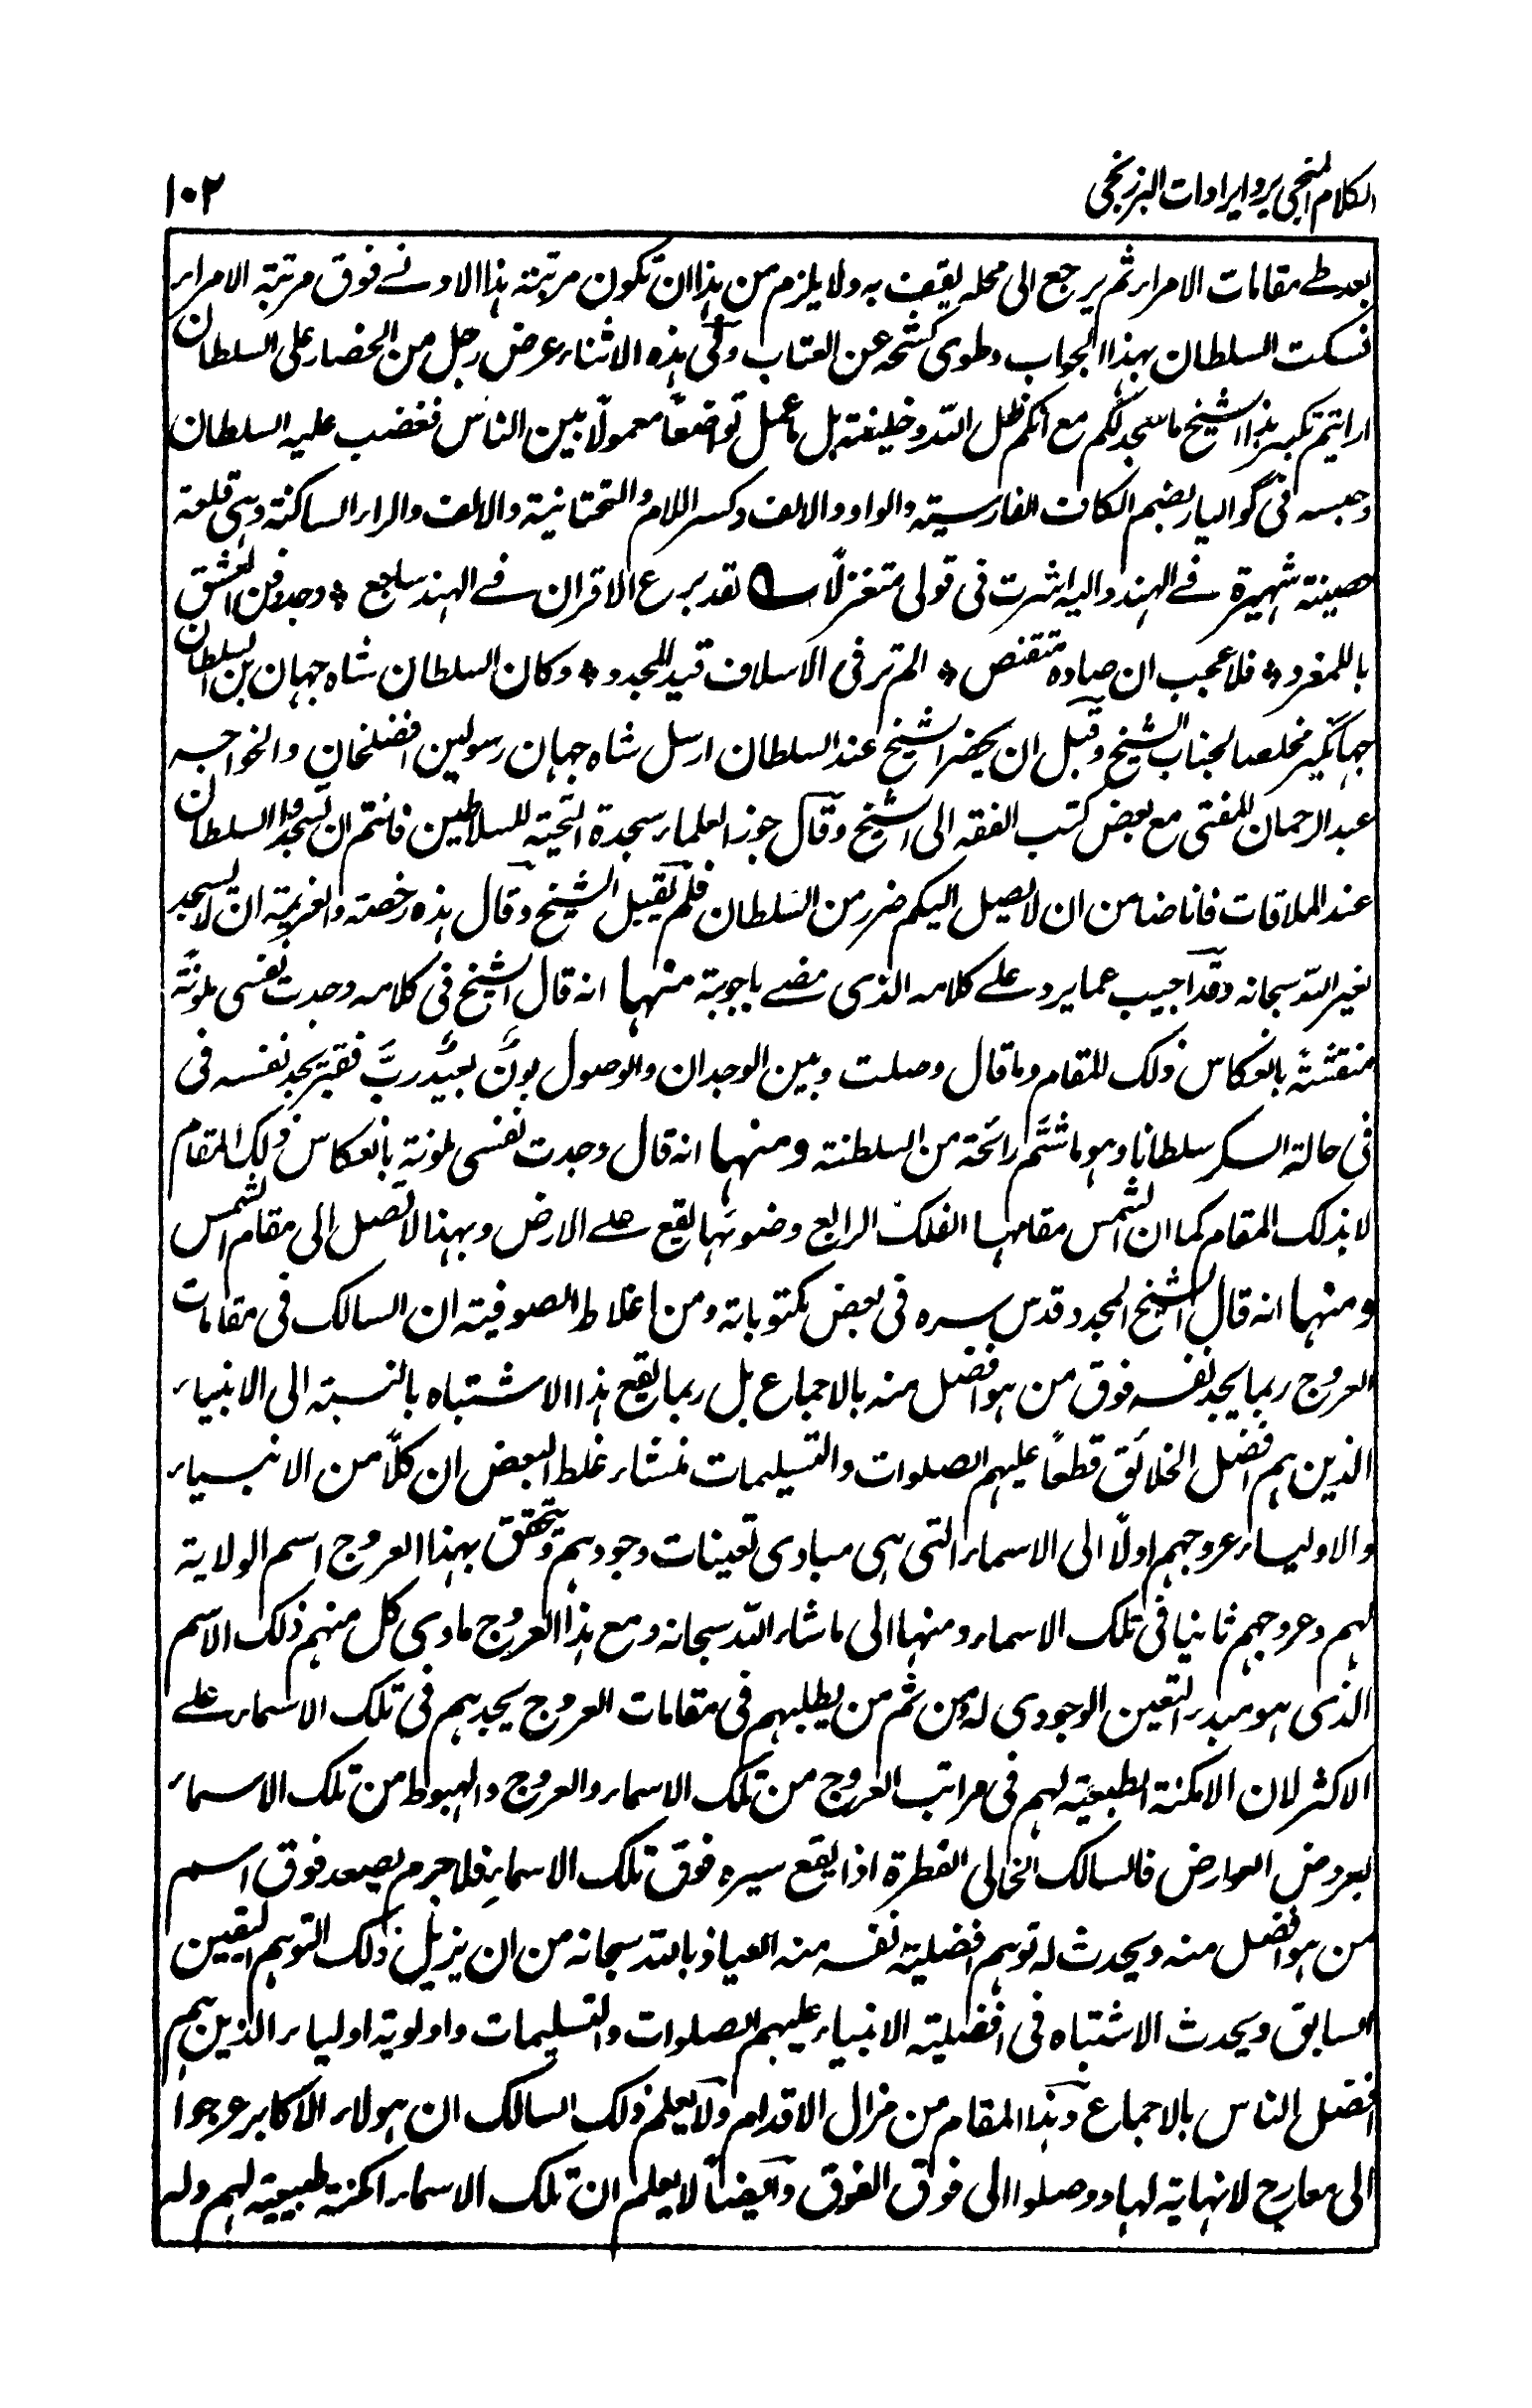 الكلام المنجي برد ايرادات البرزنجي
١٠٢
بعد طے مقامات الامراء ثم يرجع الى محله يقف به ولا يلزم من هذا ان تكون مرتبة هذا الادنے فوق مرتبة الامراء
فسكت السلطان بهذا الجواب وطوى كشحه عن العتاب وفي هذه الاثناء عرض رجل من الحضار على السلطان
ارايتم تكبر هذا الشيخ ما سجد لكم مع انكم ظل الله وخليفته بل ما عمل تواضعًا معمولًا بين الناس فغضب عليه السلطان
وحبسه في گواليار بضم الكاف الفارسية والواو والالف وكسر اللام والتحتانية والالف والراء الساكنة وهي قلعة
حصينة شهيرة فے الهند واليه اشرت في قولي متغزلًا لقد برع الاقران فے الهند ساجع * وجدد فن العشق
يا للمغرد * فلا عجب ان صاده متقنص * الم تر في الاسلاف قيد المجدد * وكان السلطان شاه جهان بن السلطان
جهانگير مخلصا لجناب الشيخ وقبل ان يحضر الشيخ عند السلطان ارسل شاه جهان رسولين افضلخان والخواجه
عبد الرحمان المفتى مع بعض كتب الفقه الى الشيخ وقال جوز العلماء سجدة التحية للسلاطين فانتم ان تسجدوا السلطان
عند الملاقات فانا ضامن ان لا يصيل اليكم ضرر من السلطان فلم يقبل الشيخ وقال هذه رخصة والعزيمة ان لا يسجد
لغير الله سبحانه وقد اجيب عما يرد علے كلامه الذي مضے باجوبة منها انه قال الشيخ في كلامه وجدت نفسي ملونةً
منقشةً بانعكاس ذلك المقام وما قال وصلت وبين الوجدان والوصول بونٌ بعيدٌ ربَّ فقير يجد نفسه في
في حالة السكر سلطانا وهو ما شمَّ رائحة من السلطنة ومنها انه قال وجدت نفسي ملونة بانعكاس ذلك المقام
لا بذلك المقام كما ان الشمس مقامها الفلك الرابع وضوئها يقع علے الارض وبهذا لا تصل الى مقام الشمس
ومنها انه قال الشيخ المجدد قدس سره في بعض مكتوباته ومن اغلاط الصوفية ان السالك في مقامات
العروج ربما يجد نفسه فوق من هو افضل منه بالاجماع بل ربما يقع هذا الاشتباه بالنسبة الى الانبياء
الذين هم افضل الخلائق قطعًا عليهم الصلوات والتسليمات منشاء غلط البعض ان كلًا من الانبياء
والاولياء عروجهم اولًا الى الاسماء التي هي مبادي تعينات وجودهم وتحقق بهذا العروج اسم الولاية
لهم وعروجهم ثانيا في تلك الاسماء ومنها الى ما شاء الله سبحانه ومع هذا العروج ماوى كل منهم ذلك الاسم
الذي هو مبدء التعين الوجودي له ومن ثم من يطلبهم في مقامات العروج يجدهم في تلك الاسماء علے
الاكثر لان الامكنة الطبعية لهم في مراتب العروج من تلك الاسماء والعروج والهبوط من تلك الاسماء
بعروض العوارض فالسالك الخالي الفطرة اذا يقع سيره فوق تلك الاسماء فلا جرم يصعد فوق اسم
من هو افضل منه ويحدث له توهم افضلية نفسه منه العياذ بالله سبحانه من ان يزيل ذلك التوهم اليقين
السابق ويحدث الاشتباه في افضلية الانبياء عليهم الصلوات والتسليمات واولوية اولياء الذين هم
افضل الناس بالاجماع وهذا المقام من مزال الاقدام ولا يعلم ذلك السالك ان هولاء الاكابر عرجوا
الى معارج لا نهاية لها ووصلوا الى فوق الفوق وايضًا لا يعلم ان تلك الاسماء امكنة طبيعية لهم وله